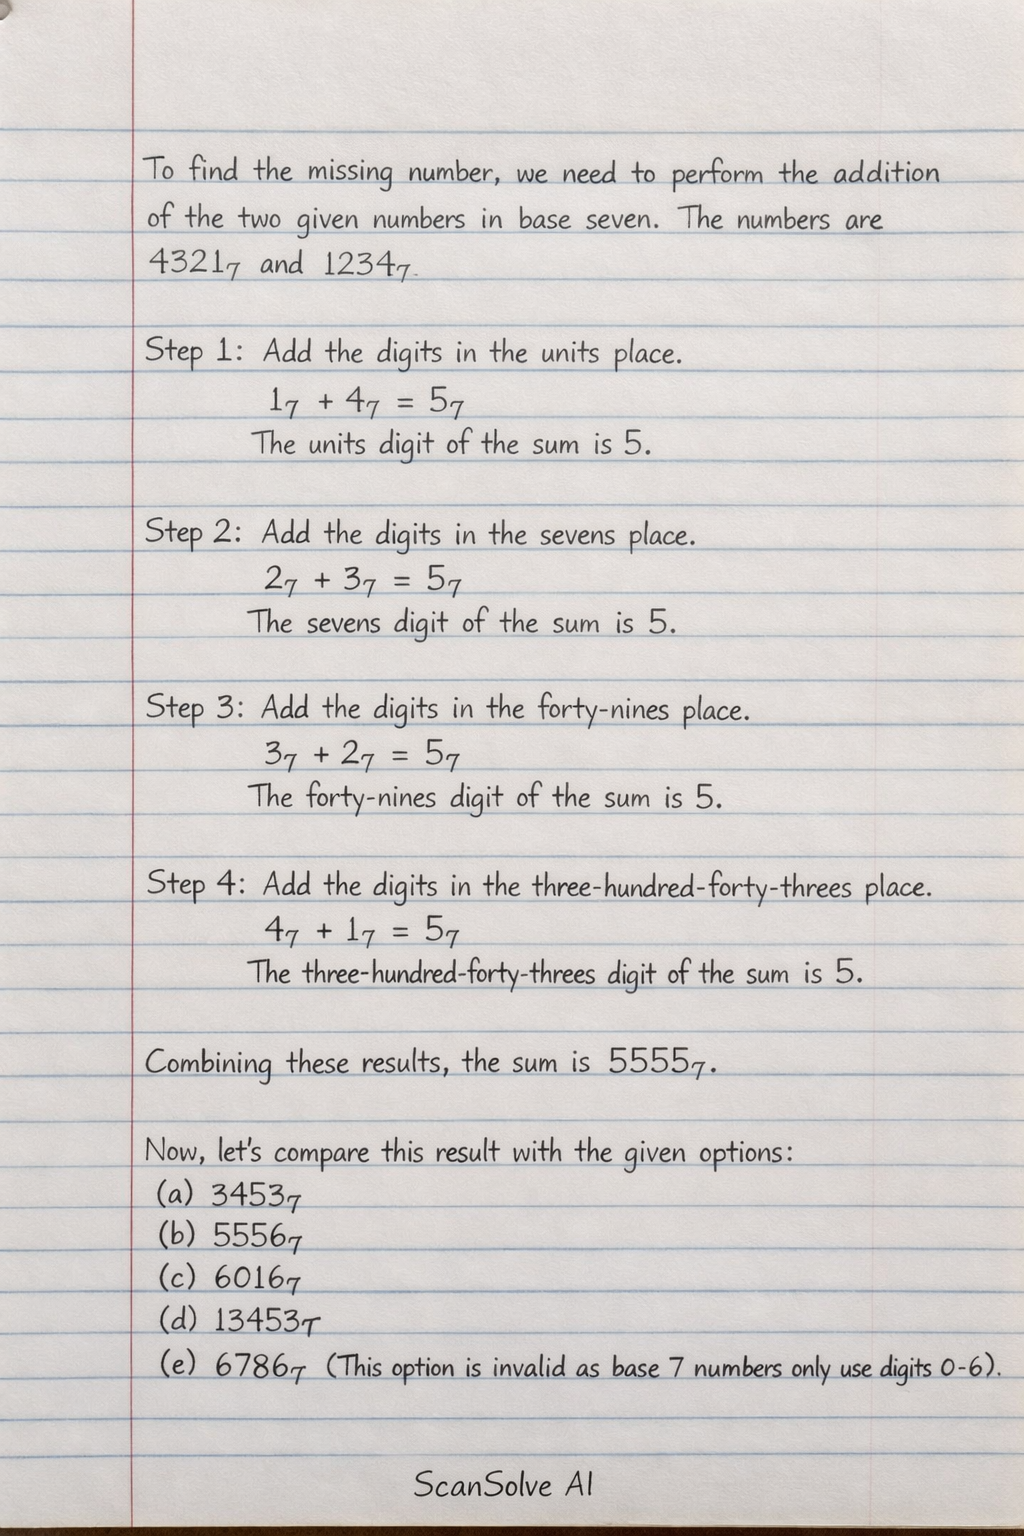 To find the missing number, we need to perform the addition
of the two given numbers in base seven. The numbers are
4321₇ and 1234₇.
Step 1: Add the digits in the units place.
1₇ + 4₇ = 5₇
The units digit of the sum is 5.
Step 2: Add the digits in the sevens place.
2₇ + 3₇ = 5₇
The sevens digit of the sum is 5.
Step 3: Add the digits in the forty-nines place.
3₇ + 2₇ = 5₇
The forty-nines digit of the sum is 5.
Step 4: Add the digits in the three-hundred-forty-threes place.
4₇ + 1₇ = 5₇
The three-hundred-forty-threes digit of the sum is 5.
Combining these results, the sum is 5555₇.
Now, let's compare this result with the given options:
(a) 3453₇
(b) 5556₇
(c) 6016₇
(d) 13453₇
(e) 6786₇ (This option is invalid as base 7 numbers only use digits 0-6).
ScanSolve AI